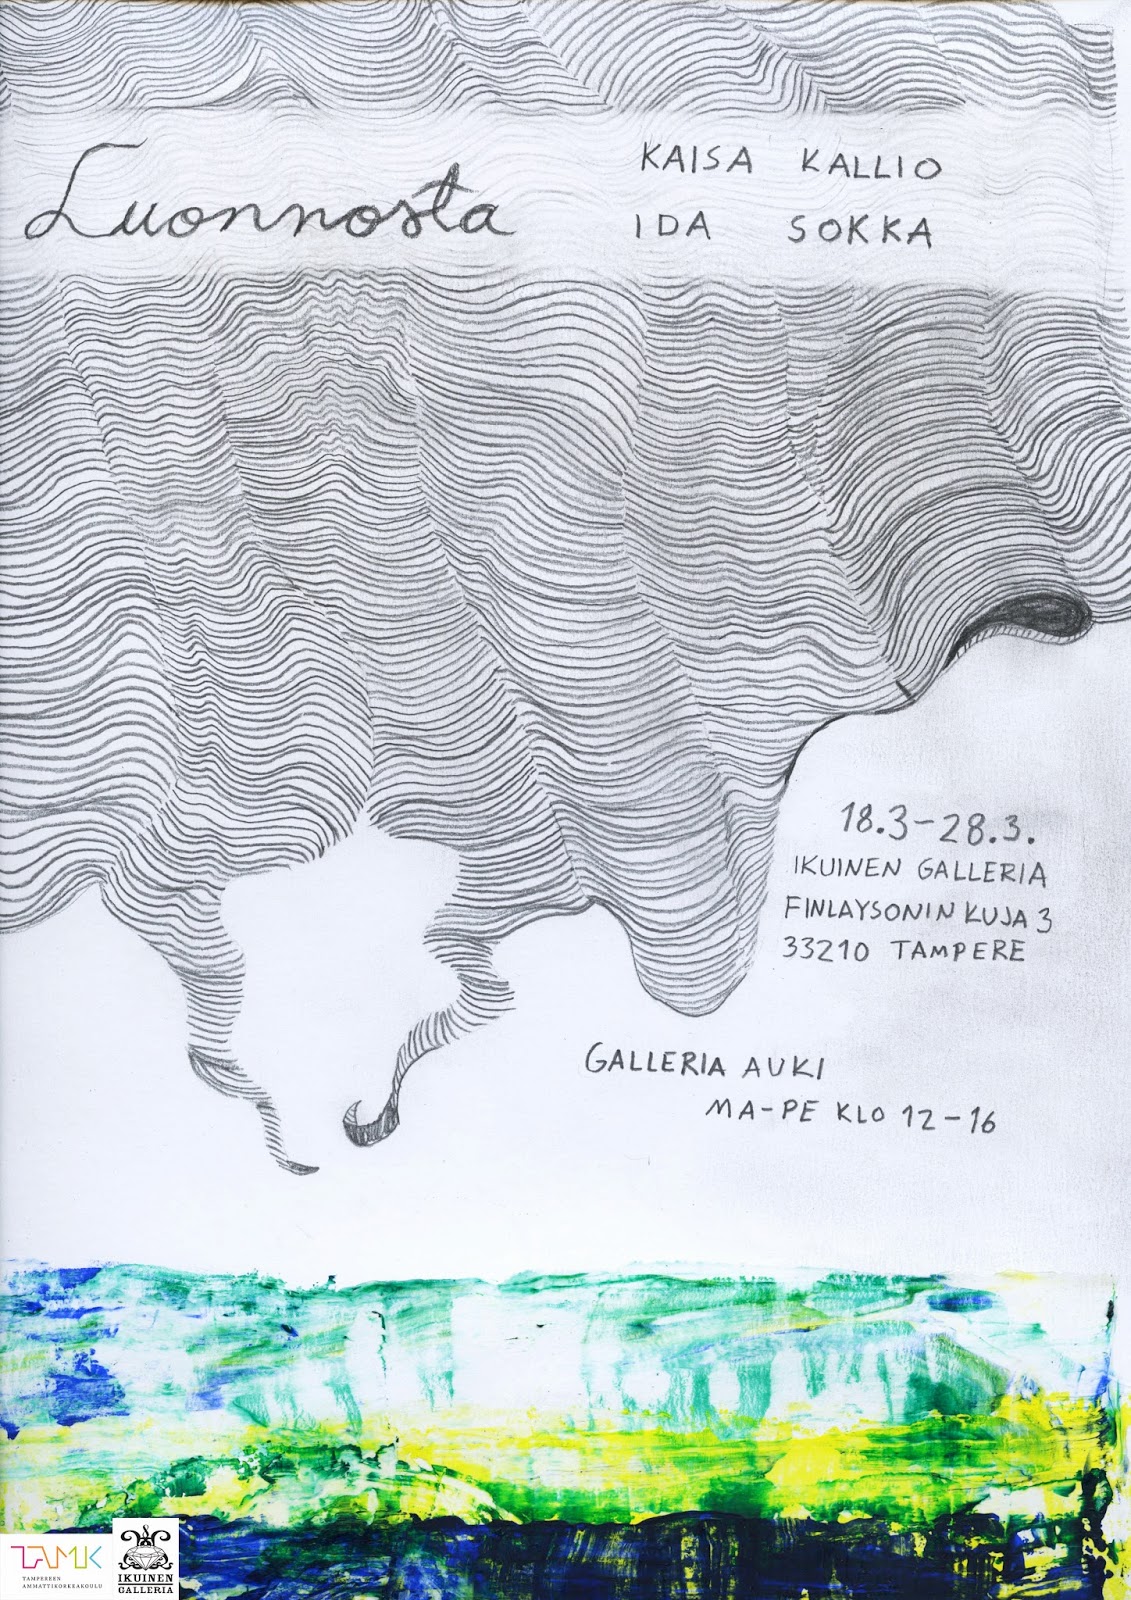 Luonnosta
KAISA KALLIO
IDA SOKKA
18.3-28.3.
IKUINEN GALLERIA
FINLAYSONIN KUJA 3
33210 TAMPERE
GALLERIA AUKI
MA-PE KLO 12-16
TAMK
TAMPEREEN
AMMATTIKORKEAKOULU
IKUINEN
GALLERIA